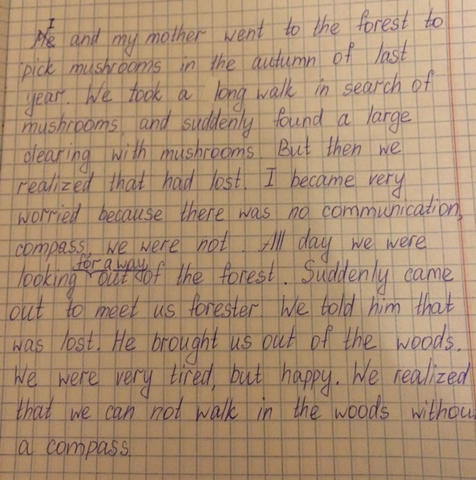 I
and my mother went to the forest to
pick mushrooms in the autumn of last
year. We took a long walk in search of
mushrooms, and suddenly found a large
clearing with mushrooms. But then we
realized that had lost. I became very
worried because there was no communication,
compass, we were not. All day we were
for a way
looking out of the forest. Suddenly came
out to meet us forester. We told him that
was lost. He brought us out of the woods.
We were very tired, but happy. We realized
that we can not walk in the woods withou
a compass.